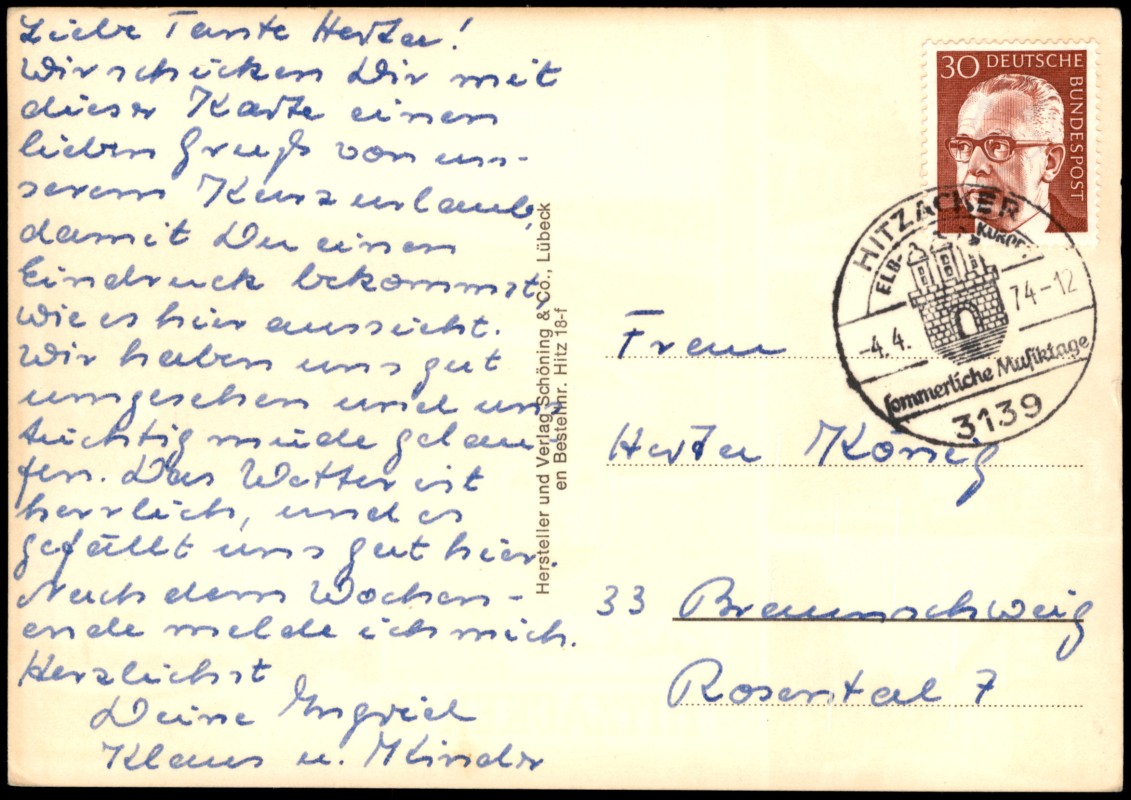 Liebe Tante Herta!
Wir schicken Dir mit
dieser Karte einen
lieben Gruß von un-
serem Kurzurlaub,
damit Du einen
Eindruck bekommst,
wie es hier aussieht.
Wir haben uns gut
umgesehen und uns
tüchtig müde gelau-
fen. Das Wetter ist
herrlich, und es
gefällt uns gut hier.
Nach dem Wochen-
ende melde ich mich.
Herzlichst
Deine Ingrid
Klaus u. Kinder
Hersteller und Verlag Schöning & Co., Lübeck
en Bestellnr. Hitz 18-f
30 DEUTSCHE
BUNDESPOST
HITZACKER
ELB-
-4.4.
74-12
Sommerliche Musiktage
3139
Frau
Herta König
33 Braunschweig
Rosental 7